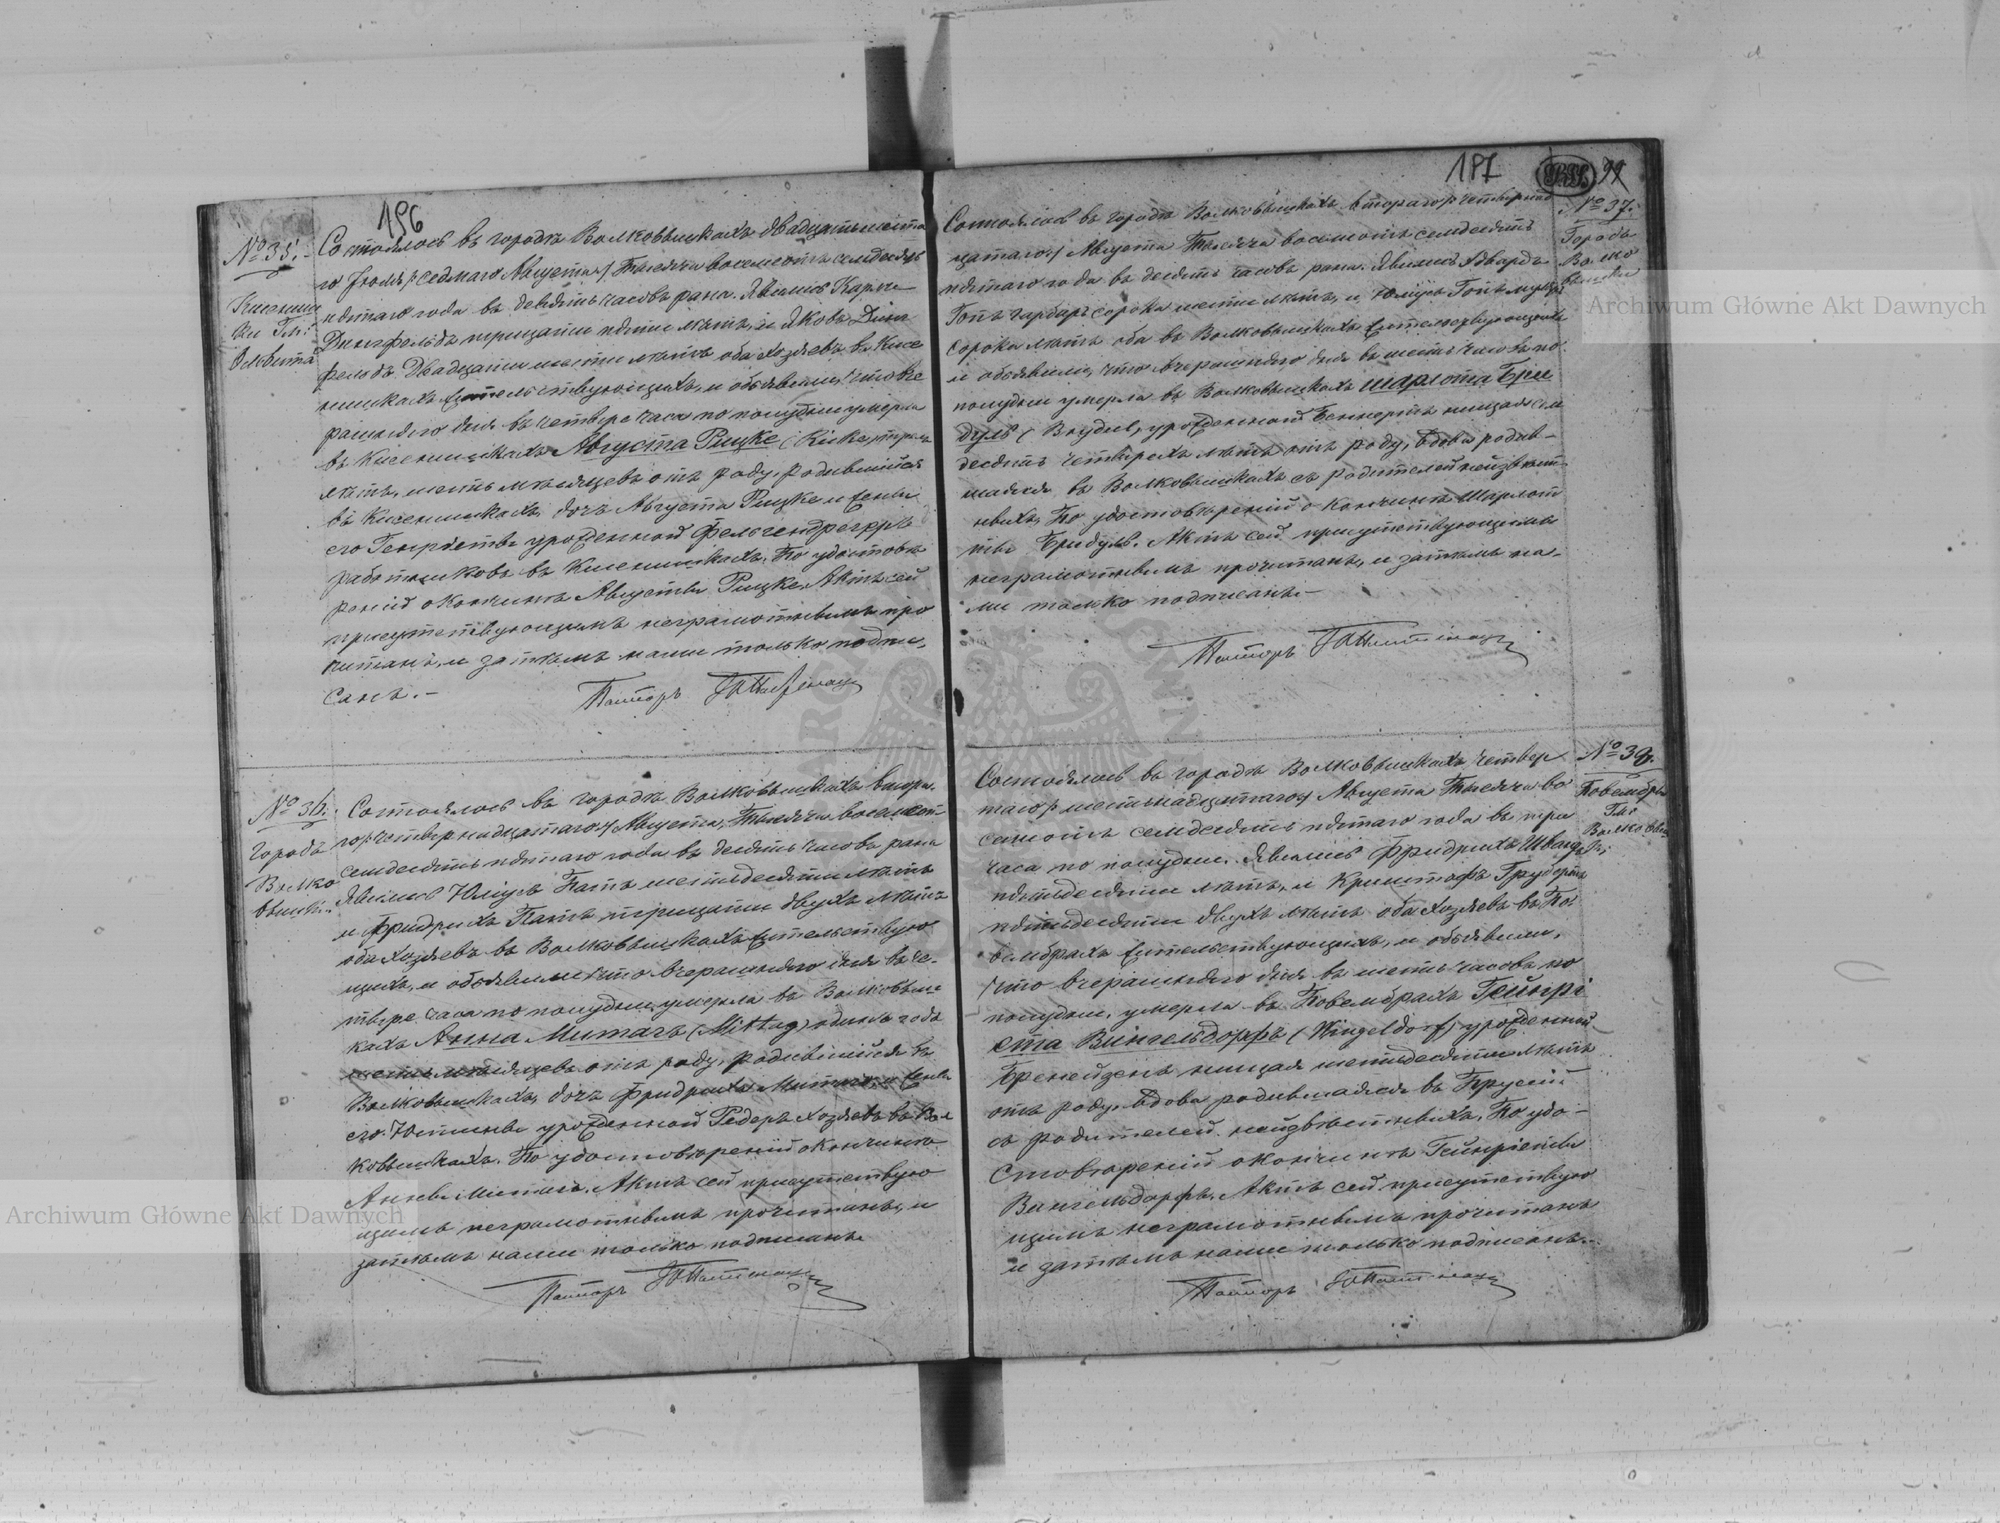 196
№ 35.
Кисениш
ки Гм:
Ольвита
Состоялось въ городѣ Волковышкахъ двадцать шеста
го Іюля /:седмаго Августа:/ Тысяча восемьсотъ семдесятъ
пятаго года въ девять часовъ рана. Явились Карлъ
Дингфельдъ трицати пяти лѣтъ, и Яковъ Динг
фельдъ двадцати шести лѣтъ оба хозяевъ въ Кисе
нишкахъ жительствующихъ, и объявили, что вче
рашняго дня въ четвере часа по полудни умерла
въ Кисенишкахъ Августа Рицке (Ricke)
лѣтъ, шесть мѣсяцевъ отъ роду, родившійся
въ Кисенишкахъ, дочь Августа Рицке и жены
его Генріеты урожденной
работниковъ въ Кисенишкахъ. По удостовѣ
ренію о кончинѣ Августы Рицке, Актъ сей
присутствующимъ неграмотнымъ про
читанъ, и затѣмъ нами только подпи
санъ. –
Пасторъ
№ 36.
Городъ
Волко
вышки.
Состоялось въ городѣ Волковышкахъ второ
го /:четвернадцатаго:/ Августа, Тысяча восемьсотъ
семдесятъ пятаго года въ десять часовъ рана
Явились Юліусъ Патъ шестьдесяти лѣтъ
и Фридрихъ Патъ трицати двухъ лѣтъ
оба хозяевъ въ Волковышкахъ жительствую
щихъ, и объявили что вчерашняго дня въ че-
твере часа по полудни, умерла въ Волковыш
кахъ Анна Митагъ (Mittag) одинъ годъ
шесть мѣсяцевъ отъ роду, родившійся въ
Волковышкахъ, дочь Фридриха Митагъ и жены
его Юстины урожденной Редеръ хозяевъ въ Вол
ковышкахъ. По удостовѣренію о кончинѣ
Анны Митагъ, Актъ сей присутствую
щимъ неграмотнымъ прочитанъ, и
затѣмъ нами только подписанъ
Пасторъ
187
99
№ 37.
Городъ
Волко
вышки
Состоялось въ городѣ Волковышкахъ втораго /:четырнад
цатаго:/ Августа Тысяча восемьсотъ семдесятъ
пятаго года въ десять часовъ рана. Явились Эдвардъ
Гопъ гарбаръ сорока шести лѣтъ, и Юліусъ Гопъ
сорока лѣтъ оба въ Волковышкахъ жительствующихъ
и объявили, что вчерашняго дня въ шесть часовъ по
полудни умерла въ Волковышкахъ Шарлота Бри
дуль урожденной Беннертъ нищая сем
десятъ четырехъ лѣтъ отъ роду, вдова родив-
шаяся въ Волковышкахъ съ родителей неизвѣст
ныхъ, По удостовѣренію о кончинѣ Шарлот
ты Бридуль. Актъ сей присутствующимъ
неграмотнымъ прочитанъ, и затѣмъ на-
ми только подписанъ –
Пасторъ
№ 38.
Повембры
Гм:
Волковыш
ки
Состоялось въ городѣ Волковышкахъ четвер
таго /:шестьнадцатаго:/ Августа Тысяча во
семьсотъ семдесятъ пятаго года въ три
часа по полудни. Явились Фридрихъ Швандъ
пятьдесяти лѣтъ, и Криштофъ Грубертъ
пятьдесяти двухъ лѣтъ оба хозяевъ въ По-
вембрахъ жительствующихъ, и объявили,
что вчерашняго дня въ шесть часовъ по
полудни, умерла въ Повембрахъ Гейнрі
ета Вингельдорфъ (Wingeldorf) урожденной
Бренейзенъ нищая шестьдесяти лѣтъ
отъ роду, вдова родившаяся въ Пруссіи
съ родителей неизвѣстныхъ, По удо-
стовѣренію о кончинѣ Гейнріеты
Вингельдорфъ, Актъ сей присутствую
щимъ неграмотнымъ прочитанъ
и затѣмъ нами только подписанъ. –
Пасторъ
Archiwum Główne Akt Dawnych
Archiwum Główne Akt Dawnych